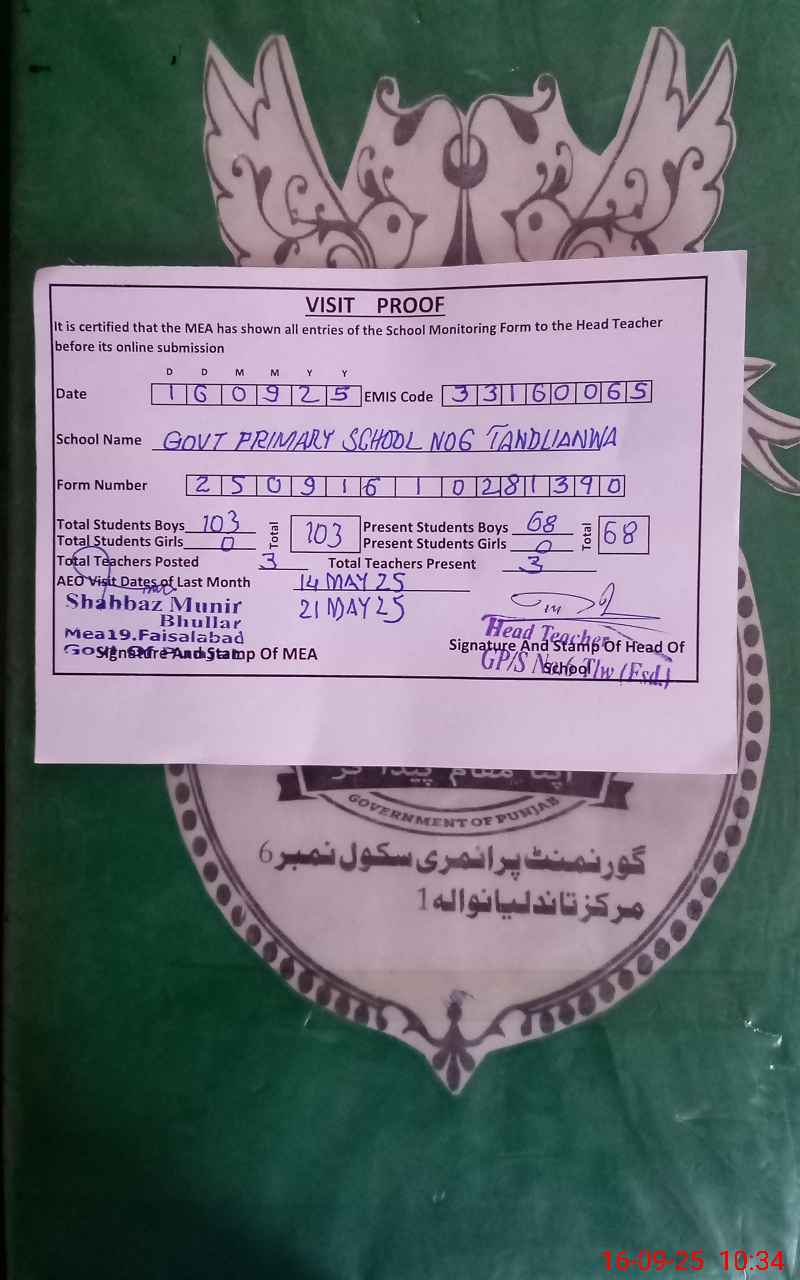 VISIT PROOF
It is certified that the MEA has shown all entries of the School Monitoring Form to the Head Teacher
before its online submission
D D M M Y Y
Date 1 6 0 9 2 5 EMIS Code 3 3 1 6 0 0 6 5
School Name GOVT PRIMARY SCHOOL NO6 TANDLIANWA
Form Number 2 5 0 9 1 6 1 0 2 8 1 3 9 0
Total Students Boys 103 Total 103 Present Students Boys 68 Total 68
Total Students Girls 0 Present Students Girls 0
Total Teachers Posted 3 Total Teachers Present 3
AEO Visit Dates of Last Month 14 MAY 25
21 MAY 25
Shahbaz Munir
Bhullar
Mea19.Faisalabad
Govt Of Punjab
Signature And Stamp Of MEA
Head Teacher
Signature And Stamp Of Head Of
School
GP/S No 6 Tlw (Fsd.)
اپنا مقام پیدا کر
GOVERNMENT OF PUNJAB
گورنمنٹ پرائمری سکول نمبر 6
مرکز تاندلیانوالہ 1
16-09-25 10:34